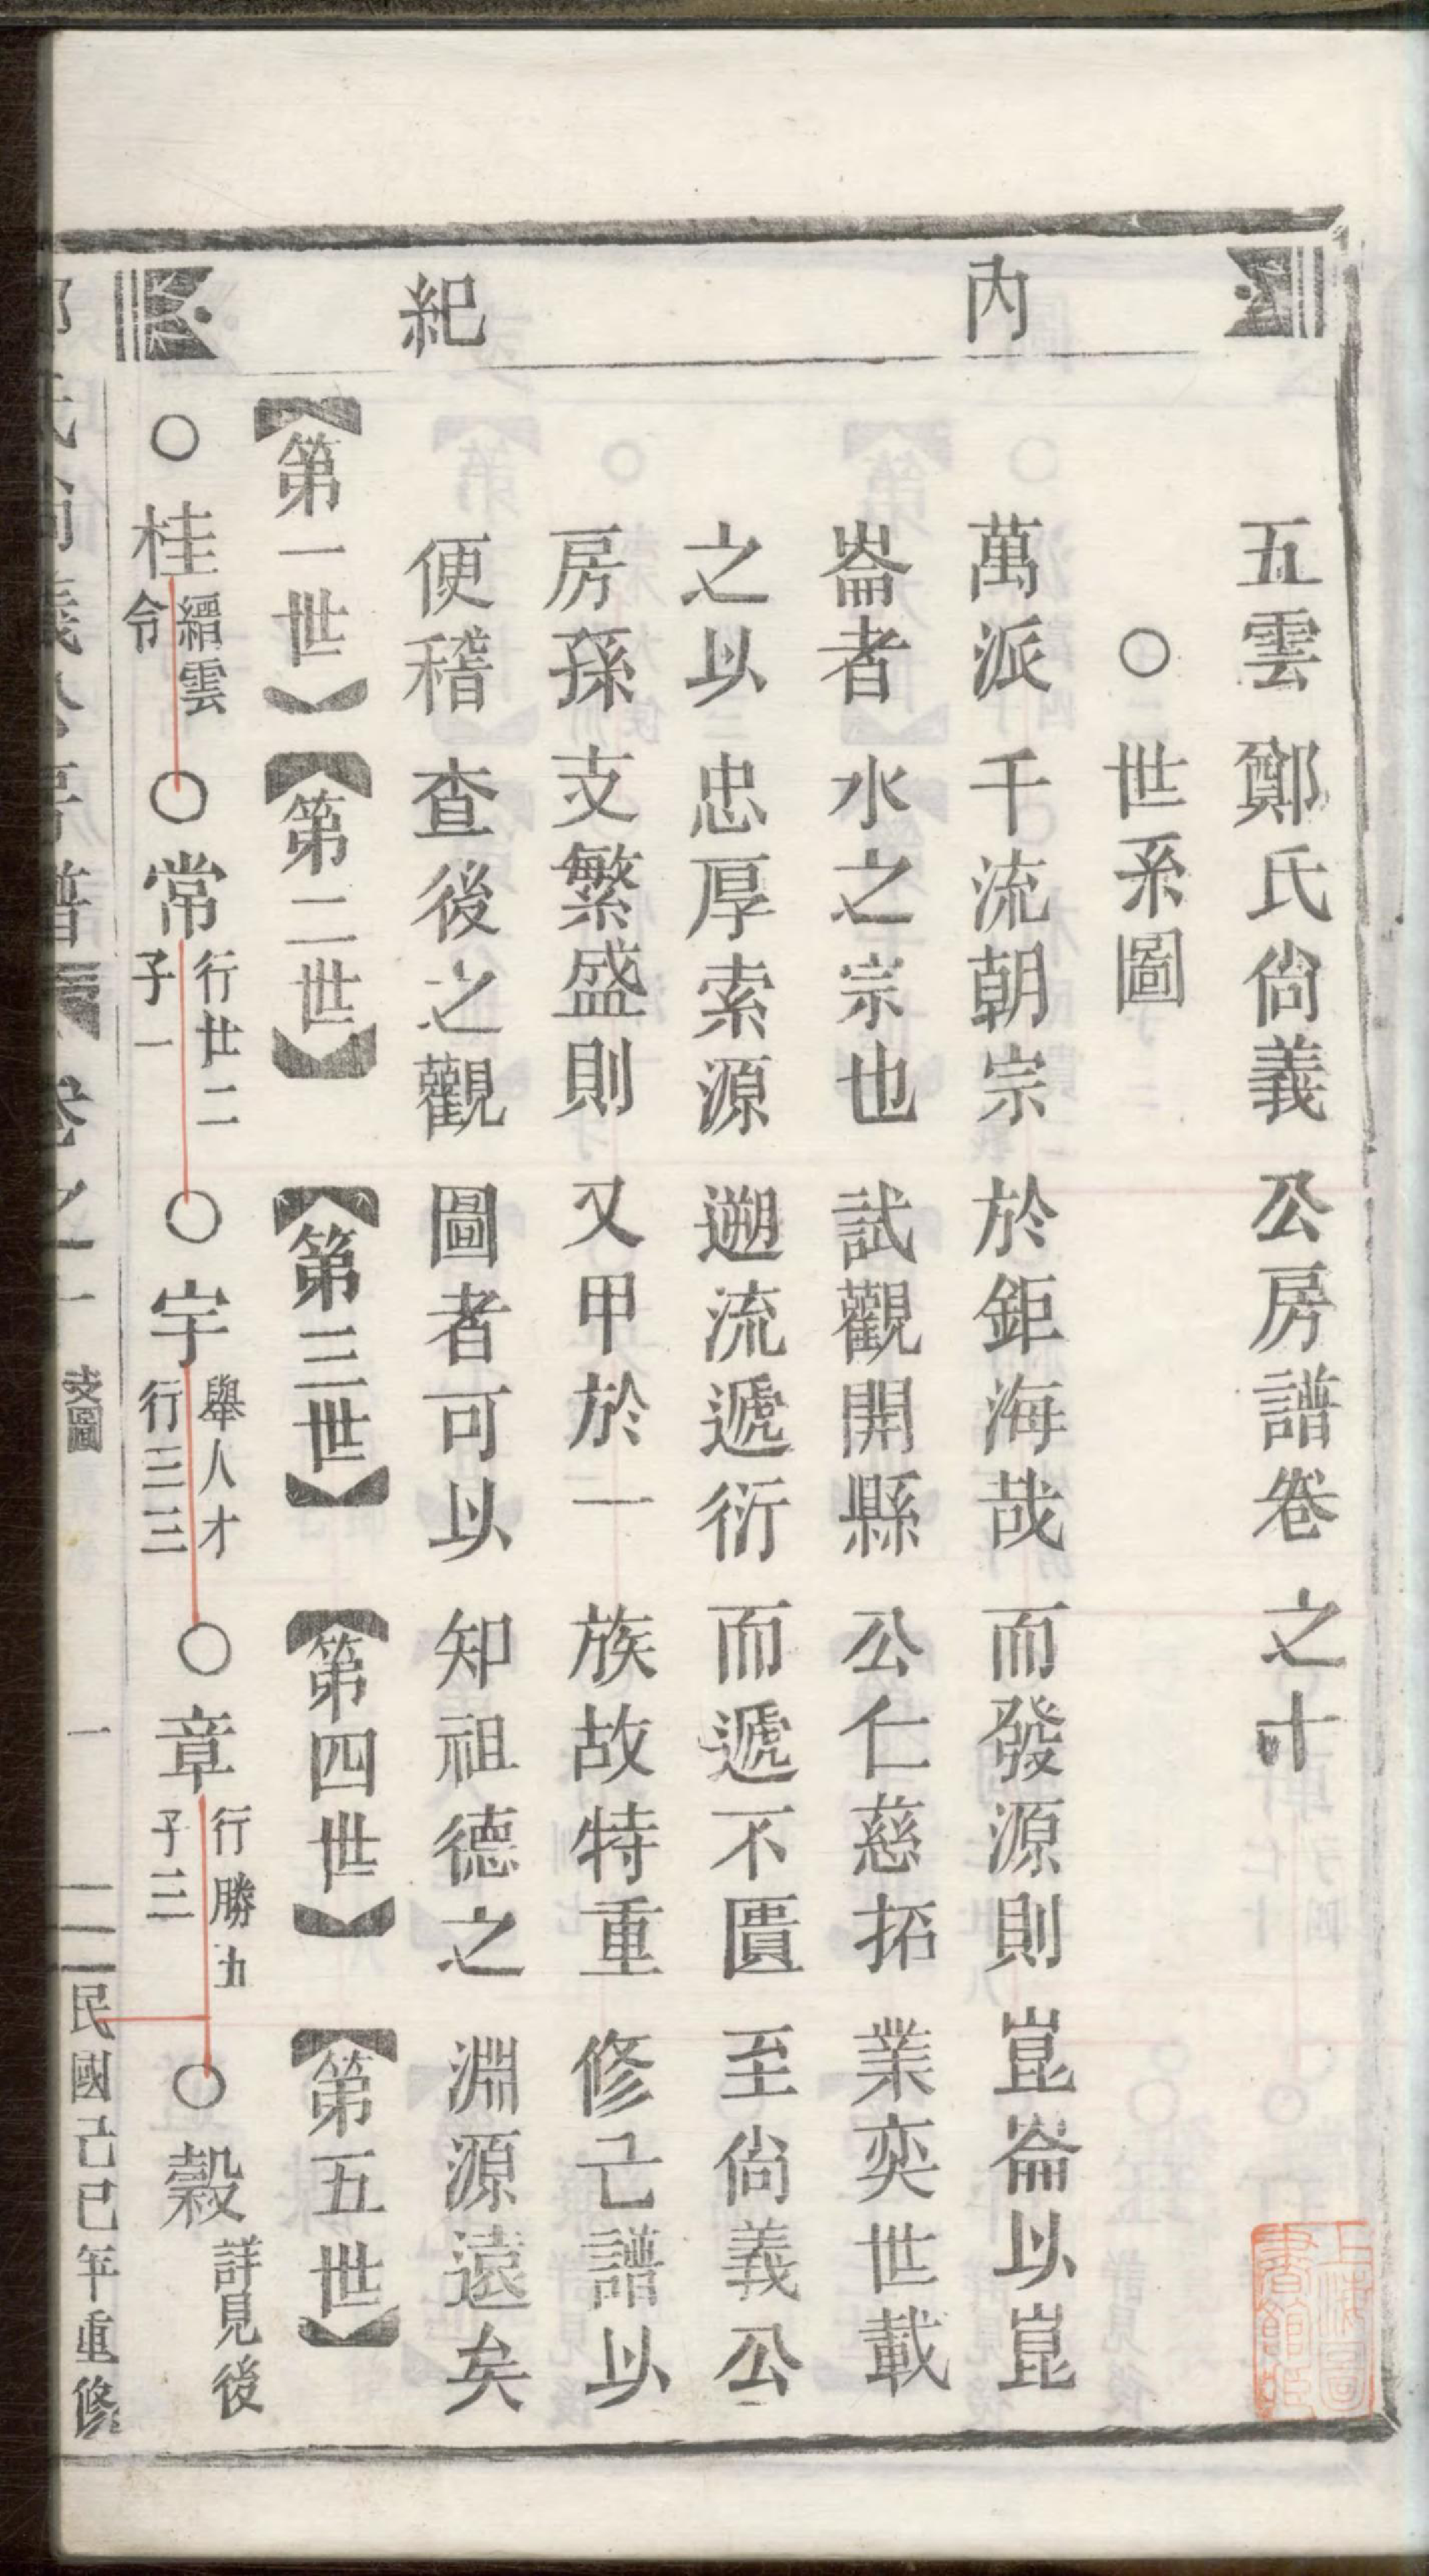 內紀
五雲鄭氏尙義公房譜卷之十
○世系圖
萬派千流朝宗於鉅海哉而發源則崑崙以崑
崙者水之宗也試觀開縣公仁慈拓業奕世載
之以忠厚索源遡流遞衍而遞不匱至尙義公
房孫支繁盛則又甲於一族故特重修亡譜以
便稽查後之觀圖者可以知祖德之淵源遠矣
【第一世】【第二世】【第三世】【第四世】【第五世】
○桂縉雲令
○常行廿二子一
○宇舉人才行三三
○章行勝九子三
○穀詳見後
鄭氏尙義公房譜 卷之十 支圖 一 民國己巳年重修